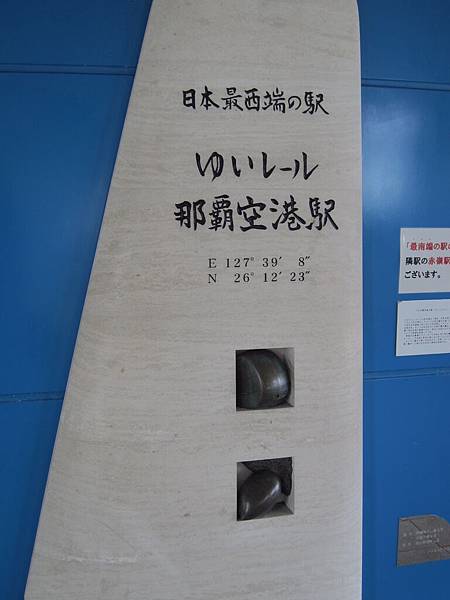 日本最西端の駅
ゆいレール
那覇空港駅
E 127° 39′ 8″
N 26° 12′ 23″
「最南端の駅
隣駅の赤嶺駅
ございます。